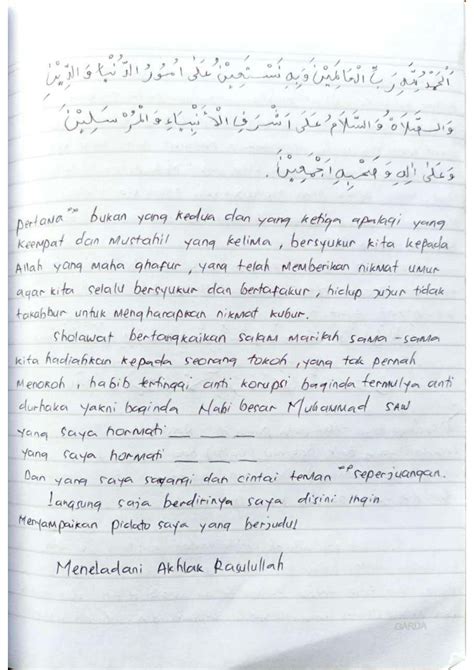 اَلْحَمْدُ لِلّٰهِ رَبِّ الْعَالَمِيْنَ وَبِهِ نَسْتَعِيْنُ عَلَى اُمُوْرِ الدُّنْيَا وَالدِّيْنِ
وَالصَّلَاةُ وَالسَّلَامُ عَلَى اَشْرَفِ الْأَنْبِيَاءِ وَالْمُرْسَلِيْنَ
وَعَلَى اٰلِهِ وَصَحْبِهِ اَجْمَعِيْنَ.
pertama" bukan yang kedua dan yang ketiga apalagi yang
keempat dan Mustahil yang kelima, bersyukur kita kepada
Allah yang maha ghafur, yang telah Memberikan nikmat umur
agar kita selalu bersyukur dan bertafakur, hidup jujur tidak
takabbur untuk Mengharapkan nikmat kubur.
Sholawat bertangkaikan salam marilah sama-sama
kita hadiahkan kepada seorang tokoh, yang tak pernah
Menokoh, habib tertinggi anti korupsi baginda termulya anti
durhaka yakni baginda Nabi besar Muhammad SAW
yang saya hormati _ _ _
yang saya hormati _ _ _
Dan yang saya sayangi dan cintai teman" seperjuangan.
Langsung saja berdirinya saya disini ingin
Menyampaikan pidato saya yang berjudul
Meneladani Akhlak Rasulullah
DARDA